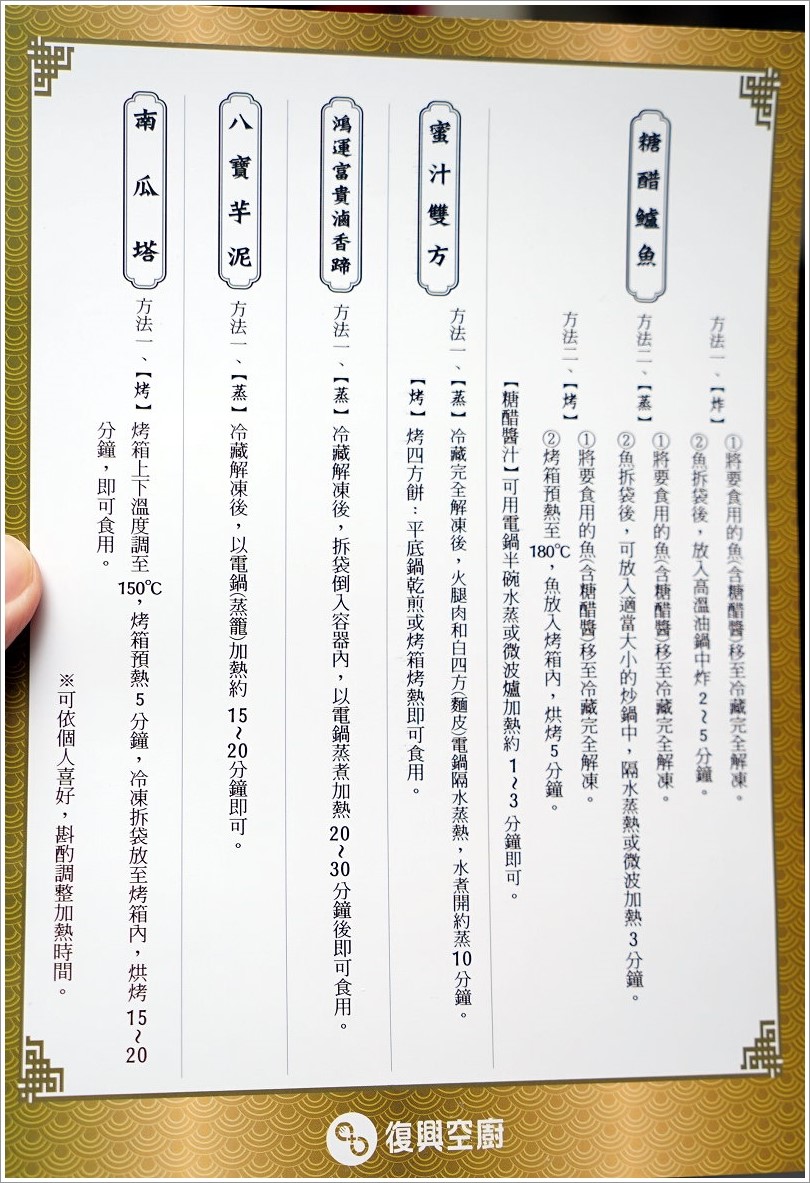 糖醋鱸魚
方法一、【炸】
①將要食用的魚(含糖醋醬)移至冷藏完全解凍。
②魚拆袋後，放入高溫油鍋中炸2~5分鐘。
方法二、【蒸】
①將要食用的魚(含糖醋醬)移至冷藏完全解凍。
②魚拆袋後，可放入適當大小的炒鍋中，隔水蒸熱或微波加熱3分鐘。
方法二、【烤】
①將要食用的魚(含糖醋醬)移至冷藏完全解凍。
②烤箱預熱至180℃，魚放入烤箱內，烘烤5分鐘。
【糖醋醬汁】可用電鍋半碗水蒸或微波爐加熱約1~3分鐘即可。
蜜汁雙方
方法一、【蒸】冷藏完全解凍後，火腿肉和白四方(麵皮)電鍋隔水蒸熱，水煮開約蒸10分鐘。
【烤】烤四方餅：平底鍋乾煎或烤箱烤熱即可食用。
鴻運富貴滷香蹄
方法一、【蒸】冷藏解凍後，拆袋倒入容器內，以電鍋蒸煮加熱20~30分鐘後即可食用。
八寶芋泥
方法一、【蒸】冷藏解凍後，以電鍋(蒸籠)加熱約15~20分鐘即可。
南瓜塔
方法一、【烤】烤箱上下溫度調至150℃，烤箱預熱5分鐘，冷凍拆袋放至烤箱內，烘烤15~20
分鐘，即可食用。
※可依個人喜好，斟酌調整加熱時間。
復興空廚